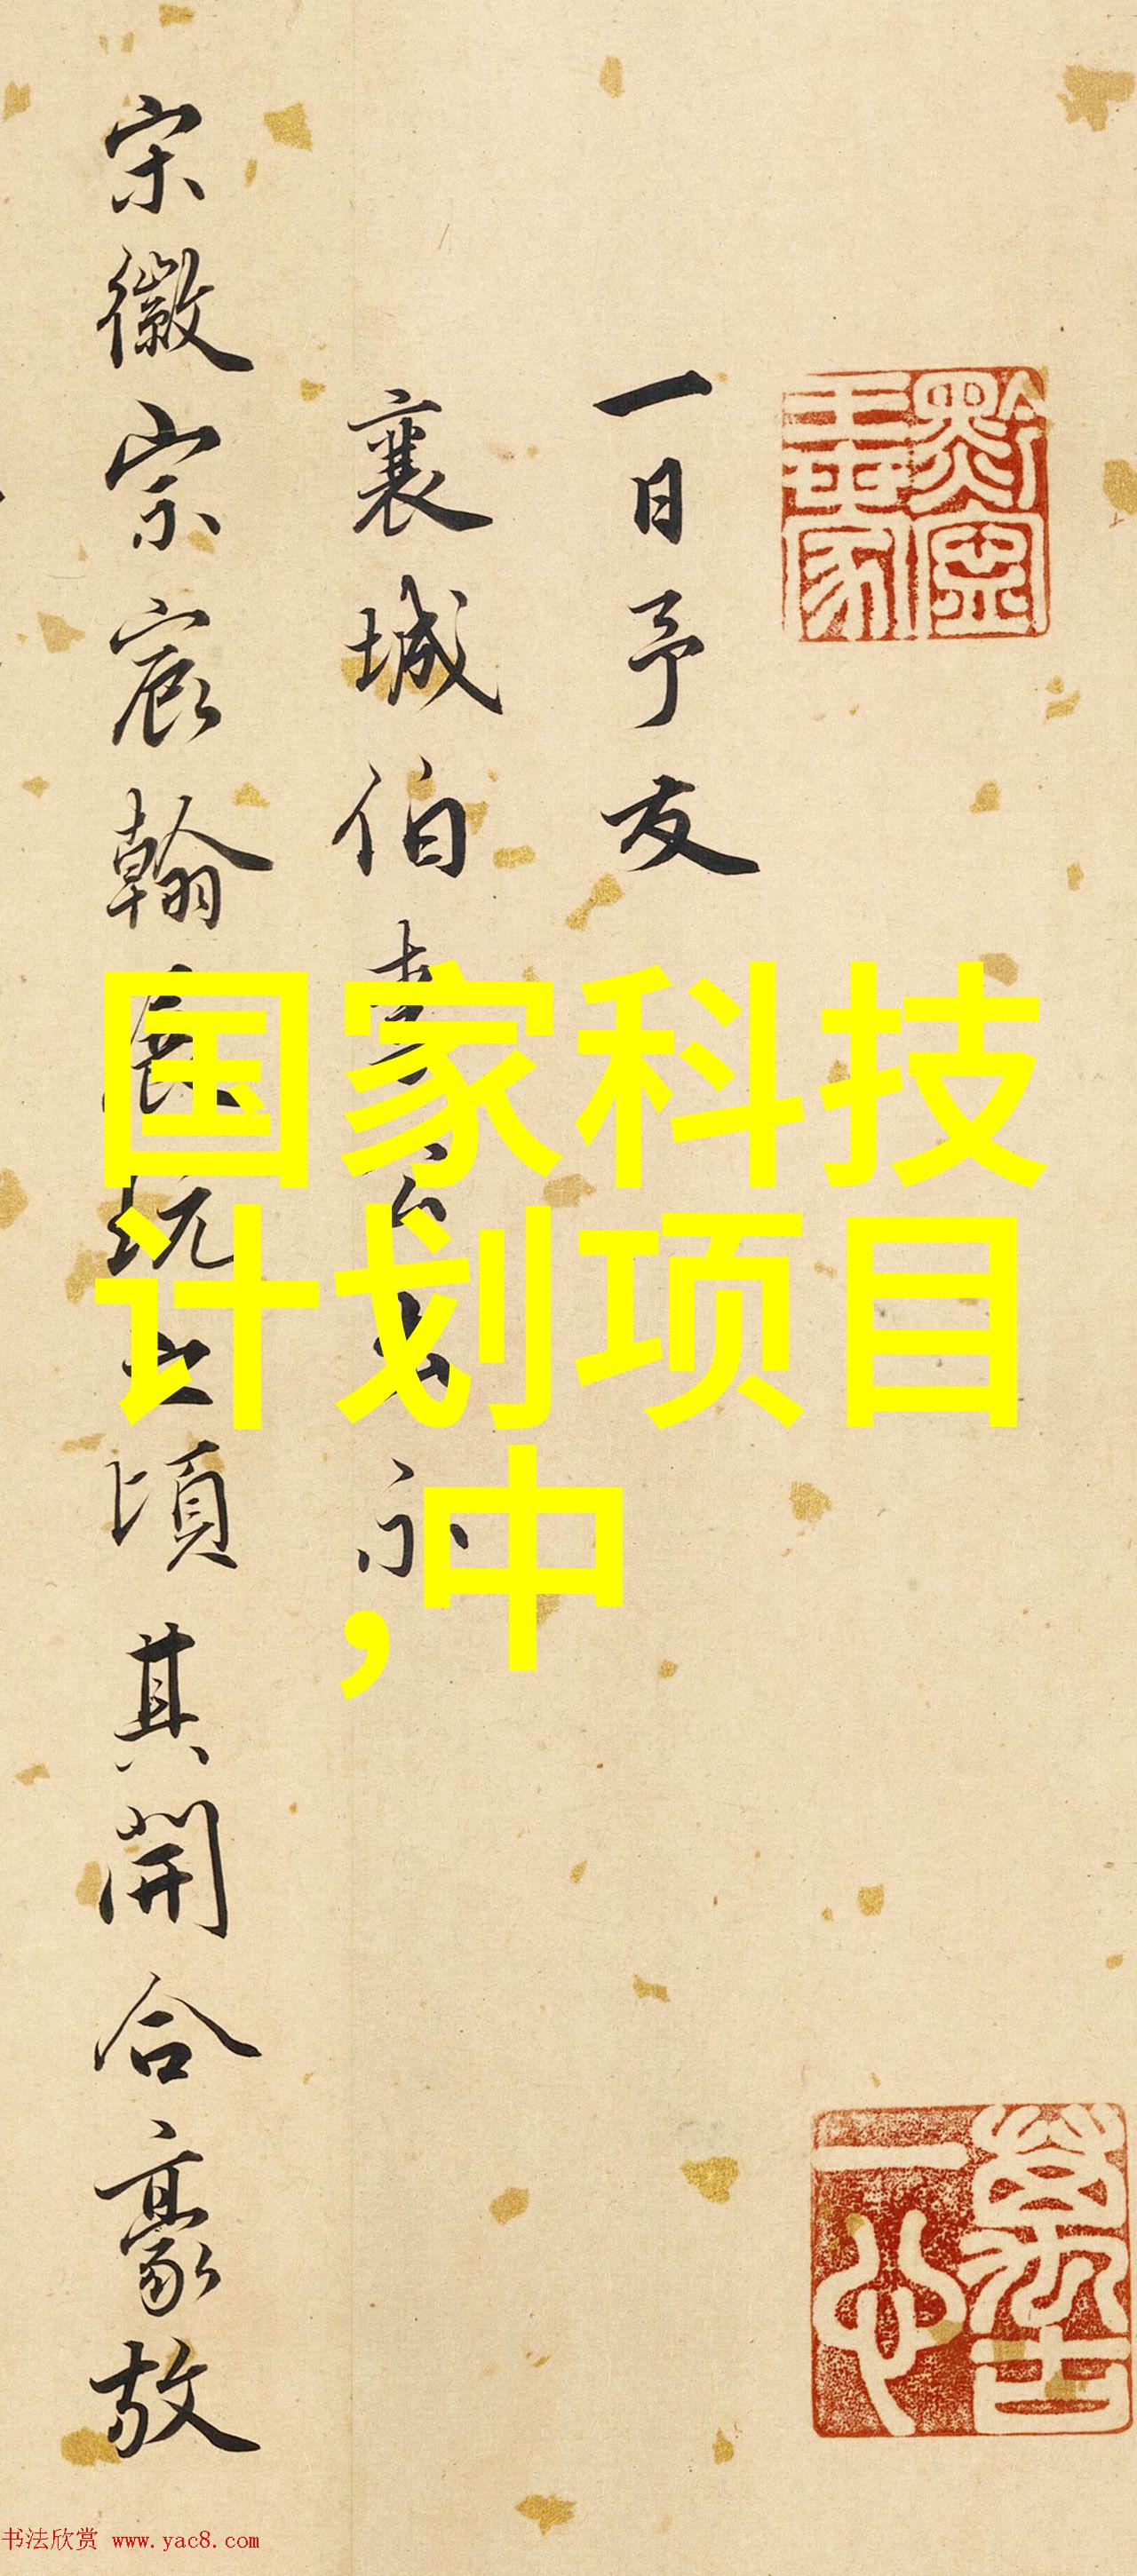 一日予友
襄城伯李公
永
宋徽宗宸翰
頃其開合豪放
国家科技
计划项目
,中
萬古
一心
书法欣赏 www.yac8.com